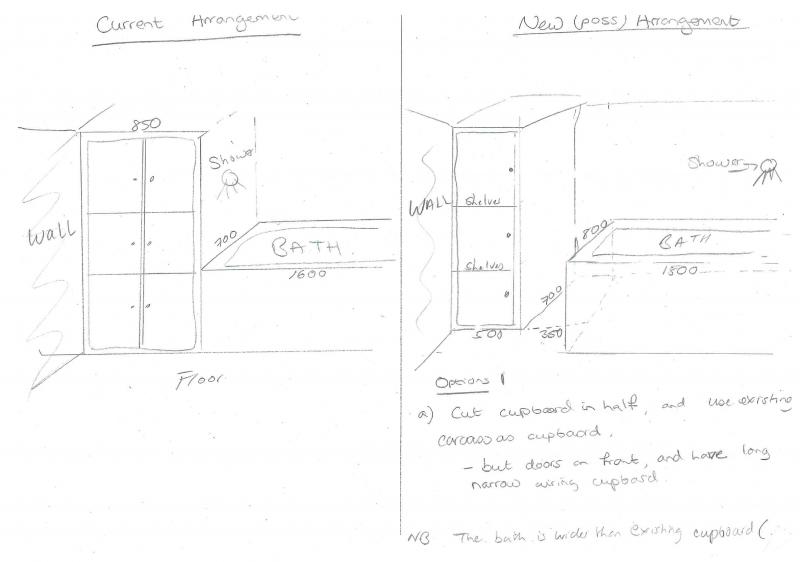 Current Arrangement
850
Shower
WALL
700
BATH.
1600
Floor.
New (poss) Arrangement
Shower
WALL
Shelves
800
BATH
1800
Shelves
700
500
350
Options 1
a) Cut cupboard in half, and use existing
carcass as cupboard.
- but doors on front, and have long
narrow airing cupboard.
NB The bath is wider then existing cupboard (.